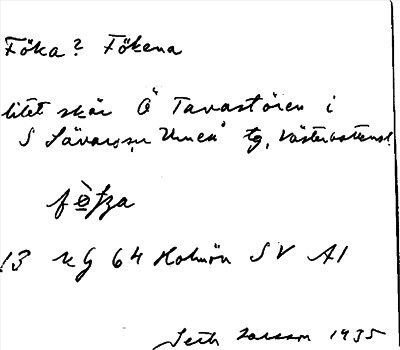 Föka? Fökena
litet skär Ö Tavastören i
S Sävar sn Umeå tg, Västerbottensl
13 kg 64 Holmön SV A1
Seth Larsson 1935